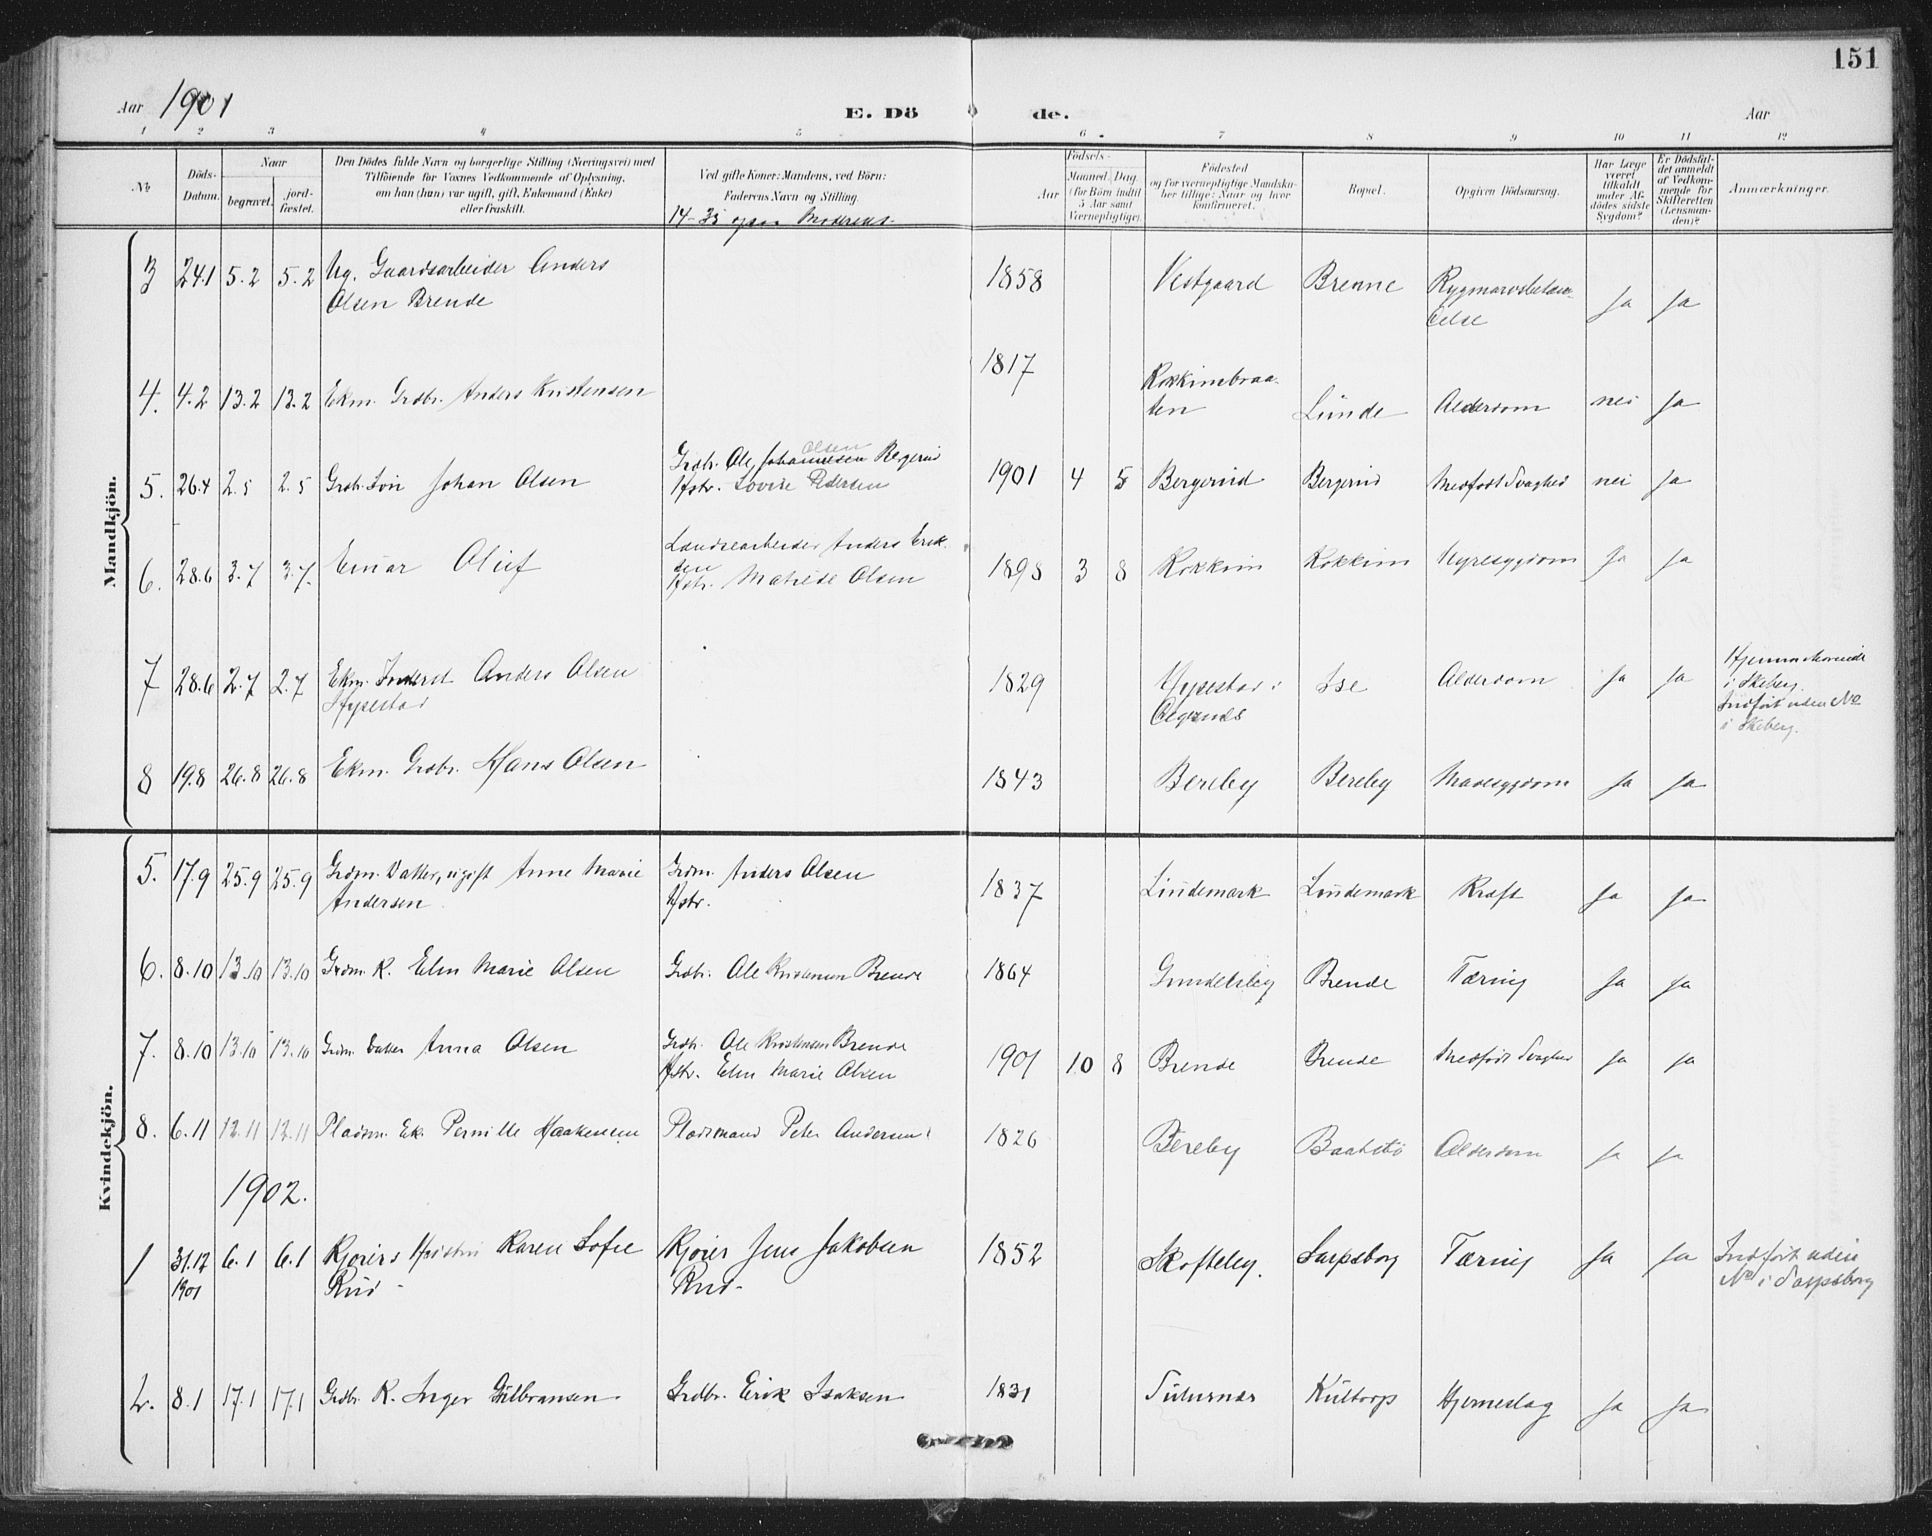 151
Aar 1901
E. Dö de.
Aar
1 2 3 4 5 6 7 8 9 10 11 12
No
Döds-Datum.
Naar
begravet.
jord-fæstet.
Den Dödes fulde Navn og borgerlige Stilling (Næringsvei) med
Tilföiende for Voxnes Vedkommende af Oplysning,
om han (hun) var ugift, gift, Enkemand (Enke)
eller fraskilt.
Ved gifte Koner: Mandens, ved Börn:
Faderens Navn og Stilling.
14-35 ogsaa Moderens.
Födsels-
Aar
Maaned. Dag
(for Börn indtil
5 Aar samt
Værnepligtige).
Födested
og for værnepligtige Mandskaber tillige: Naar og hvor
konfirmeret.
Bopæl.
Opgiven Dödsaarsag.
Har Læge
været
tilkaldt
under Afdödes sidste
Sygdom?
Er Dödsfaldet anmeldt
af Vedkommende for
Skifteretten
(Lensmanden)?
Anmærkninger.
Mandkjön.
3 24.1 5.2 5.2 Ug. Gaardsarbeider Anders 1858 Vestgaard Brenne
Olsen Brende Ja Ja
4. 4.2 13.2 13.2 Ekm. Grdbr. Anders Kristensen 1817 Kokkimbraa-
ten Lunde Alderdom nei Ja
5. 26.4 2.5 2.5 Grdb. Søn Johan Olsen Grdbr. Ole Johannesen Olsen Bergerud 1901 4 5 Bergerud Bergerud Medfødt Svaghed nei Ja
Hstr. Lovise Pedersen
6. 28.6 3.7 3.7 Einar Oluf Landsearbeider Anders Erik-
sen 1898 3 8 Kokkim Kokkim Nyresygdom Ja Ja
Hstr. Matilde Olsen
7 28.6 2.7 2.7 Ekm. Anders Olsen 1829 Alderdom Ja Ja Hjemmehørende
i Skeberg.
Indført uden No
i Skeberg.
8 19.8 26.8 26.8 Ekm. Grdbr. Hans Olsen 1843 Bereby Bereby Mavesygdom Ja Ja
Kvindekjön.
5. 17.9 25.9 25.9 Grdm. Datter, ugift Anne Marie Grdm. Anders Olsen 1837 Lindemark Lindemark Kræft Ja Ja
Andersen Hstr.
6. 8.10 13.10 13.10 Grdm. K. Elen Marie Olsen Grdbr. Ole Kristensen Brende 1864 Gundelsby Brende Tæring Ja Ja
7. 8.10 13.10 13.10 Grdm. Datter Anna Olsen Grdb. Ole Kristensen Brende 1901 10 8 Brende Brende Medfødt Svaghed Ja Ja
Hstr. Elen Marie Olsen
8. 6.11 12.11 12.11 Pladsm. Ek. Pernille Haakensen Pladsmand Peter Andersen 1826 Bereby Alderdom Ja Ja
1902.
1 31.12 6.1 6.1 Kjørers Hustru Karen Sofie Kjører Jens Jakobsen 1852 Skofteby. Sarpsborg Tæring Ja Ja Indført uden
1901 Rud - Rud - No i Sarpsborg
2. 8.1 17.1 17.1 Grdbr. K. Inger Gulbransen Grdbr. Erik Isaksen 1831 Kultorp Hjerneslag Ja Ja